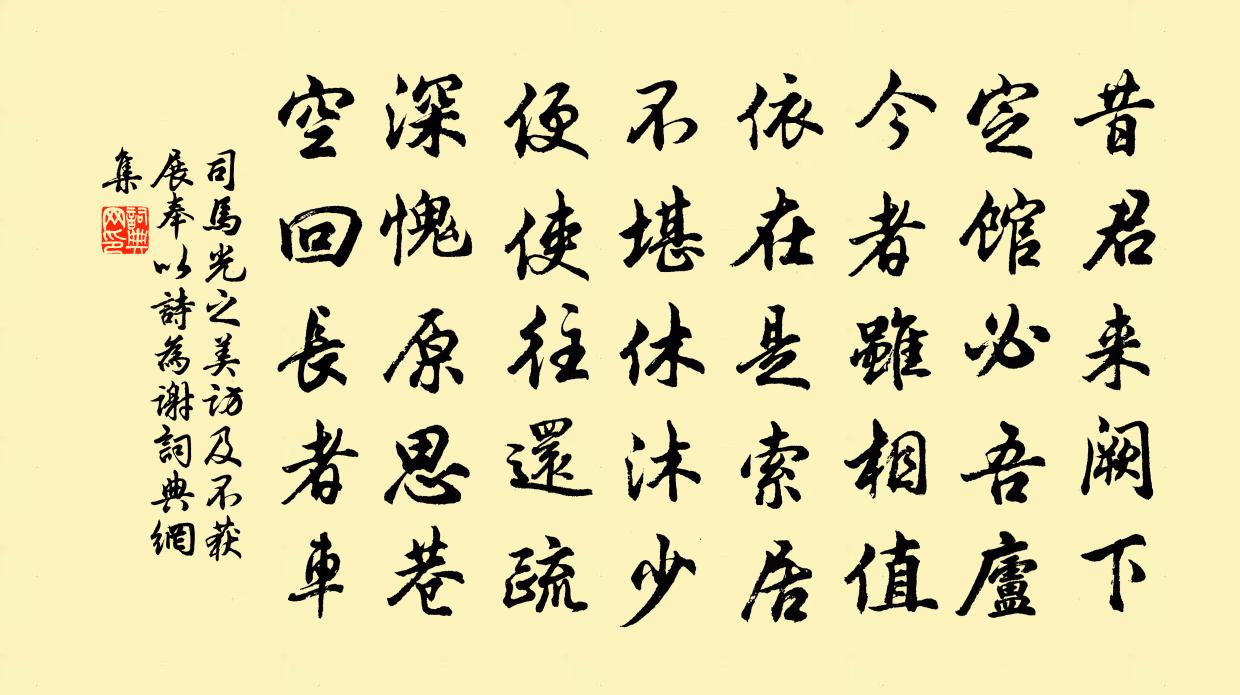 昔君来阙下
定馆必吾廬
今者雖相值
依在是索居
不堪休沐少
便使往還疏
深愧原思巷
空回長者車
司馬光之美访及不获
展奉以詩為谢詞典網
集
詞典
网印